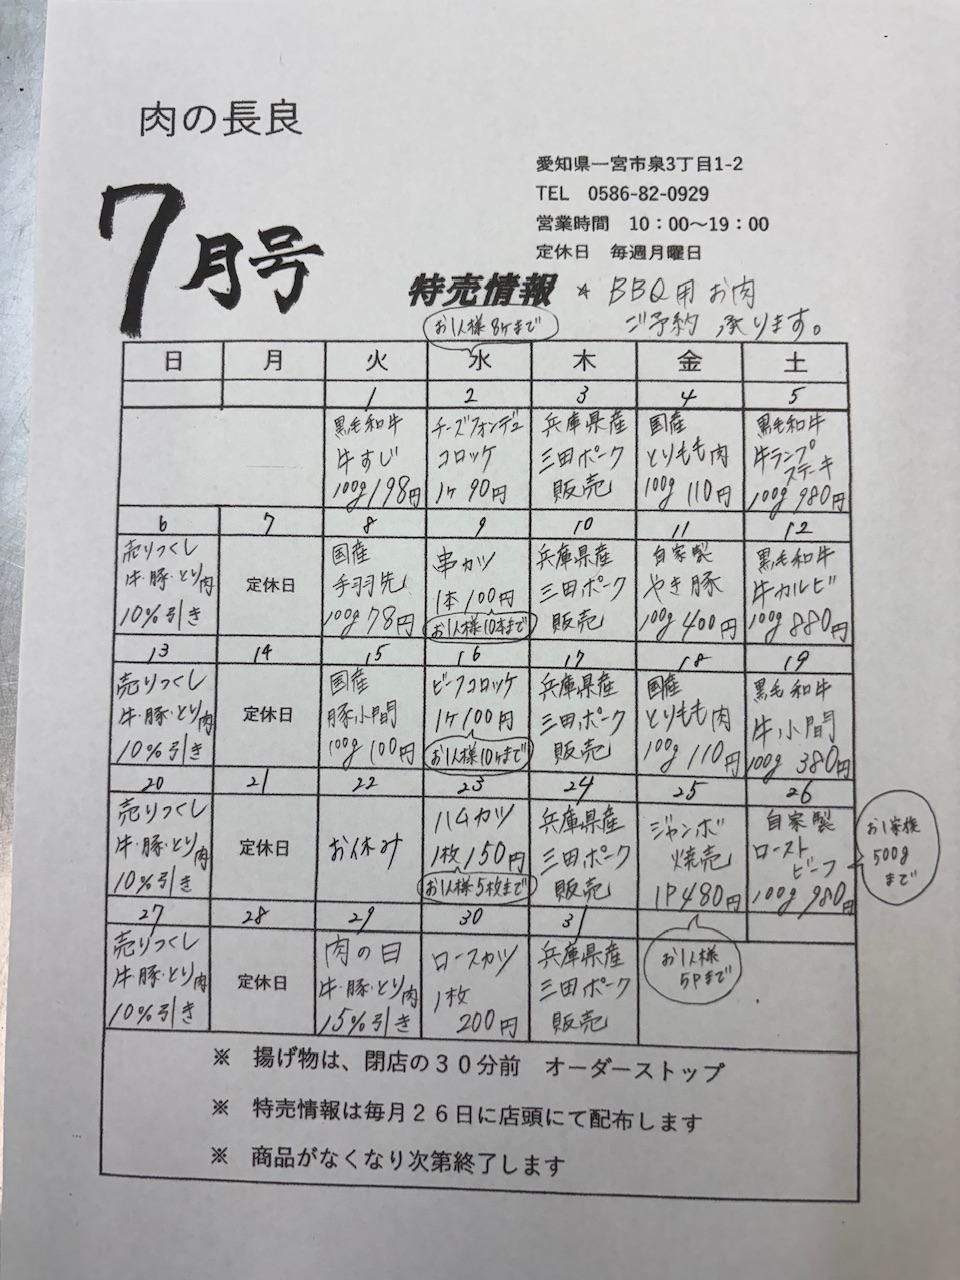 肉の長良
愛知県一宮市泉3丁目1-2
TEL 0586-82-0929
営業時間 10：00～19：00
定休日 毎週月曜日
7月号
特売情報 * BBQ用お肉
ご予約承ります。
お1人様8ヶまで
日 月 火 水 木 金 土
1 2 3 4 5
黒毛和牛
牛すじ
100g198円
チーズフォンデュ
コロッケ
1ヶ90円
兵庫県産
三田ポーク
販売
国産
とりもも肉
100g110円
黒毛和牛
牛ランプ
ステーキ
100g980円
6 7 8 9 10 11 12
売りつくし
牛・豚・とり肉
10%引き
定休日
国産
手羽先
100g78円
串カツ
1本100円
お1人様10本まで
兵庫県産
三田ポーク
販売
自家製
やき豚
100g400円
黒毛和牛
牛カルビ
100g880円
13 14 15 16 17 18 19
売りつくし
牛・豚・とり肉
10%引き
定休日
国産
豚小間
100g100円
ビーフコロッケ
1ヶ100円
お1人様10ヶまで
兵庫県産
三田ポーク
販売
国産
とりもも肉
100g110円
黒毛和牛
牛小間
100g380円
20 21 22 23 24 25 26
売りつくし
牛・豚・とり肉
10%引き
定休日
お休み
ハムカツ
1枚150円
お1人様5枚まで
兵庫県産
三田ポーク
販売
ジャンボ
焼売
1P480円
お1人様
5Pまで
自家製
ロースト
ビーフ
100g980円
お1家様
500g
まで
27 28 29 30 31
売りつくし
牛・豚・とり肉
10%引き
定休日
肉の日
牛・豚・とり肉
15%引き
ロースカツ
1枚
200円
兵庫県産
三田ポーク
販売
※ 揚げ物は、閉店の３０分前 オーダーストップ
※ 特売情報は毎月２６日に店頭にて配布します
※ 商品がなくなり次第終了します